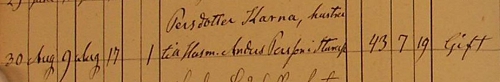 Persdotter Karna, hustru
30 Aug 9 Aug 17 1 till Husm. Anders Persson i Stamp 43 7 19 Gift